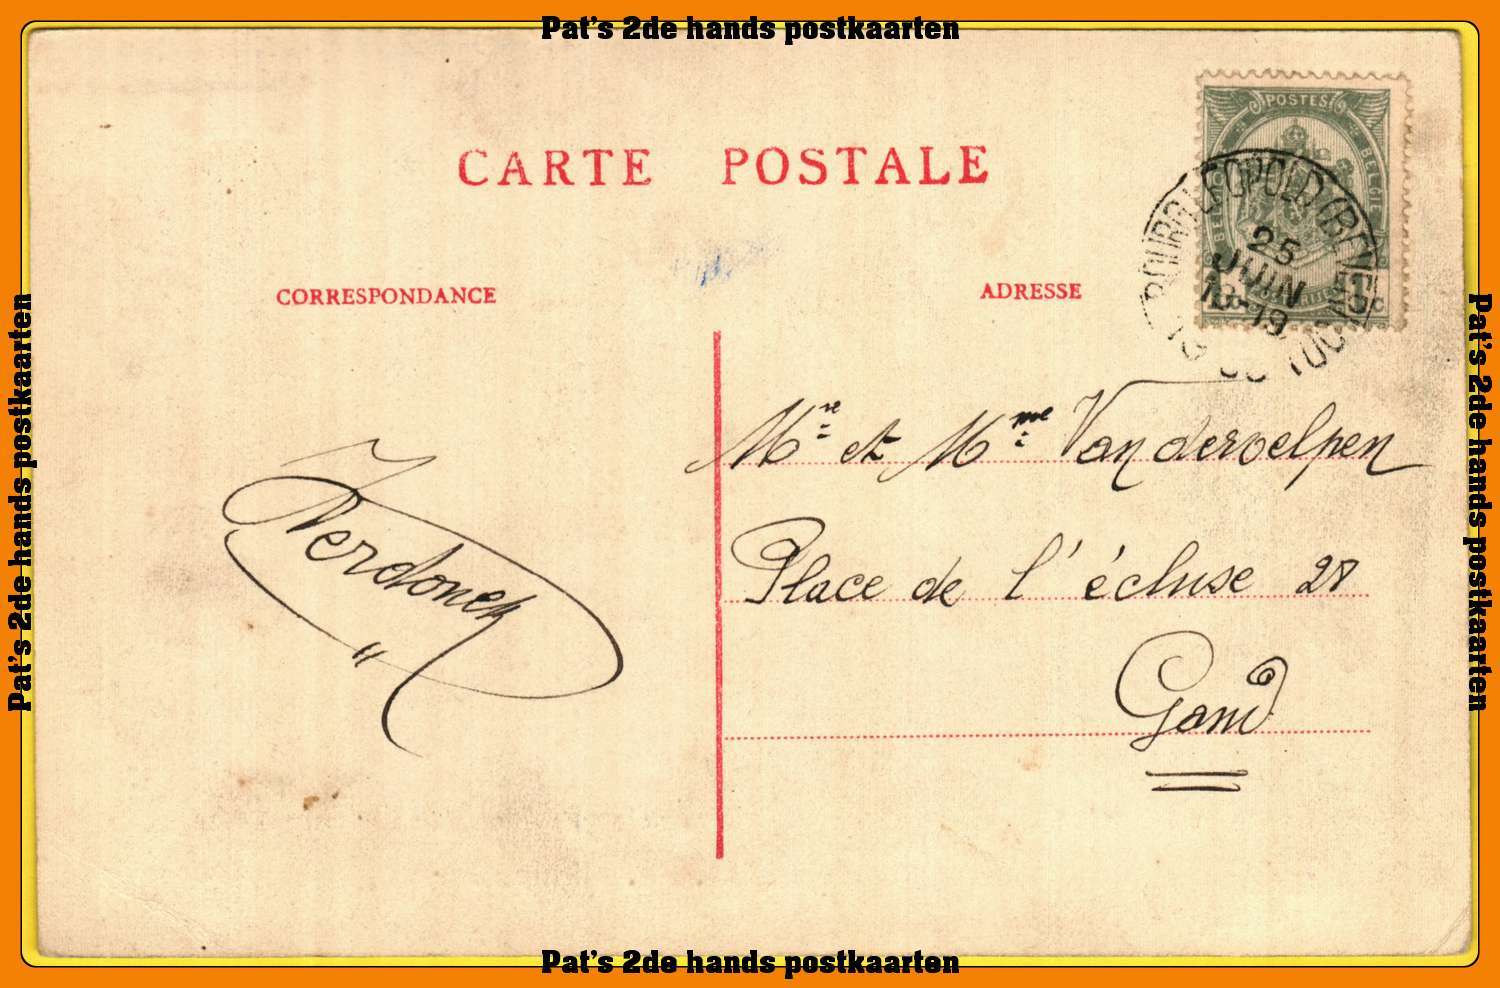 Pat's 2de hands postkaarten
CARTE POSTALE
POSTES
BELGIE
BOURG LEOPOLD (BEV
25
JUIN
18-19
CORRESPONDANCE
ADRESSE
Mr et Mme Vandervelpen
Place de l'écluse 28
Gand
Verdonck
Pat's 2de hands postkaarten
Pat's 2de hands postkaarten
Pat's 2de hands postkaarten